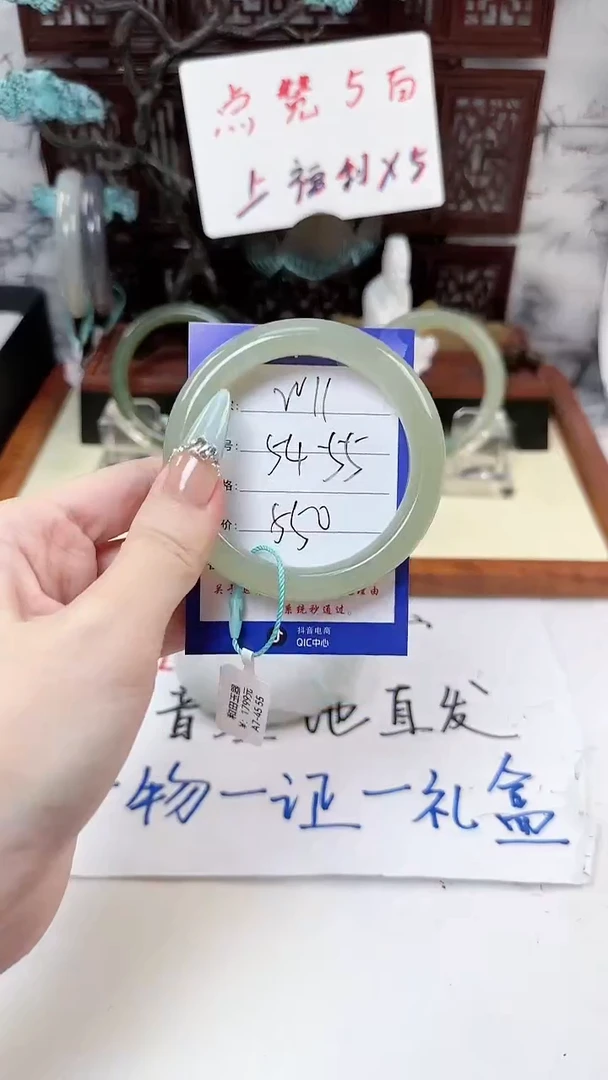 点赞5百
上福利X5
W11
号: 54-55
格:
价: 550
系统秒通过。
抖音电商
QIC中心
和田玉圆
¥: 1799元
A7-45 55
音 地直发
物一证一礼盒